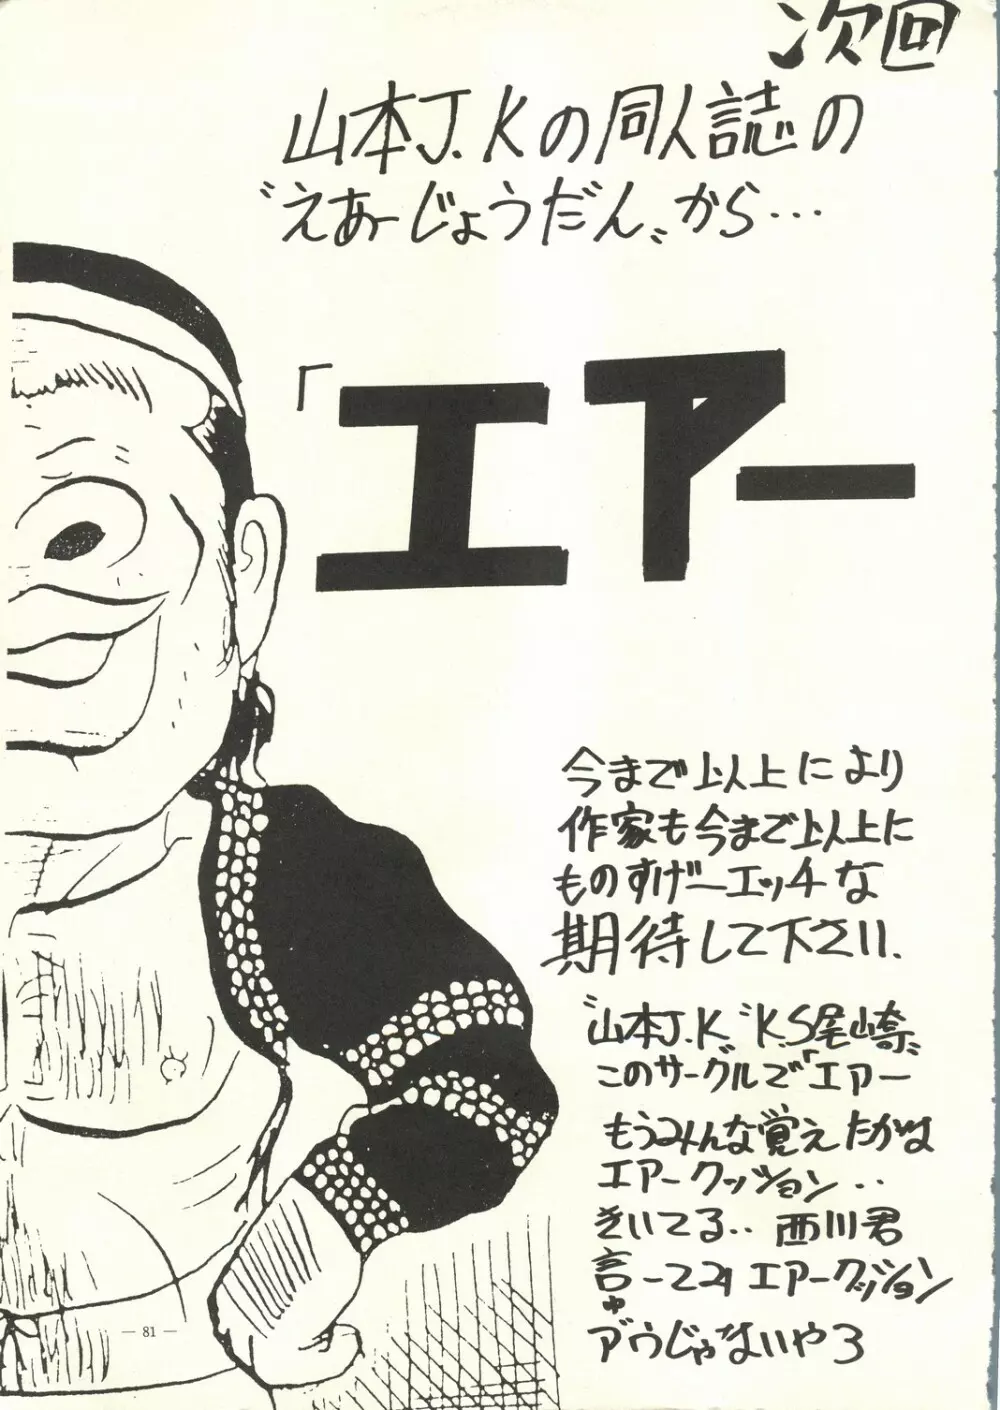 次回
山本J.Kの同人誌の
〝えあーじょうだん〟から…
「エアー
今まで以上により
作家も今まで以上に
ものすげーエッチな
期待して下さい.
〝山本J.K〟〝K.S尾崎〟
このサークルで「エアー
もうみんな覚えたかな
エアークッション‥
きいてる‥ 西川君
言ってみ エアークッション
アウじゃないやろ
— 81 —